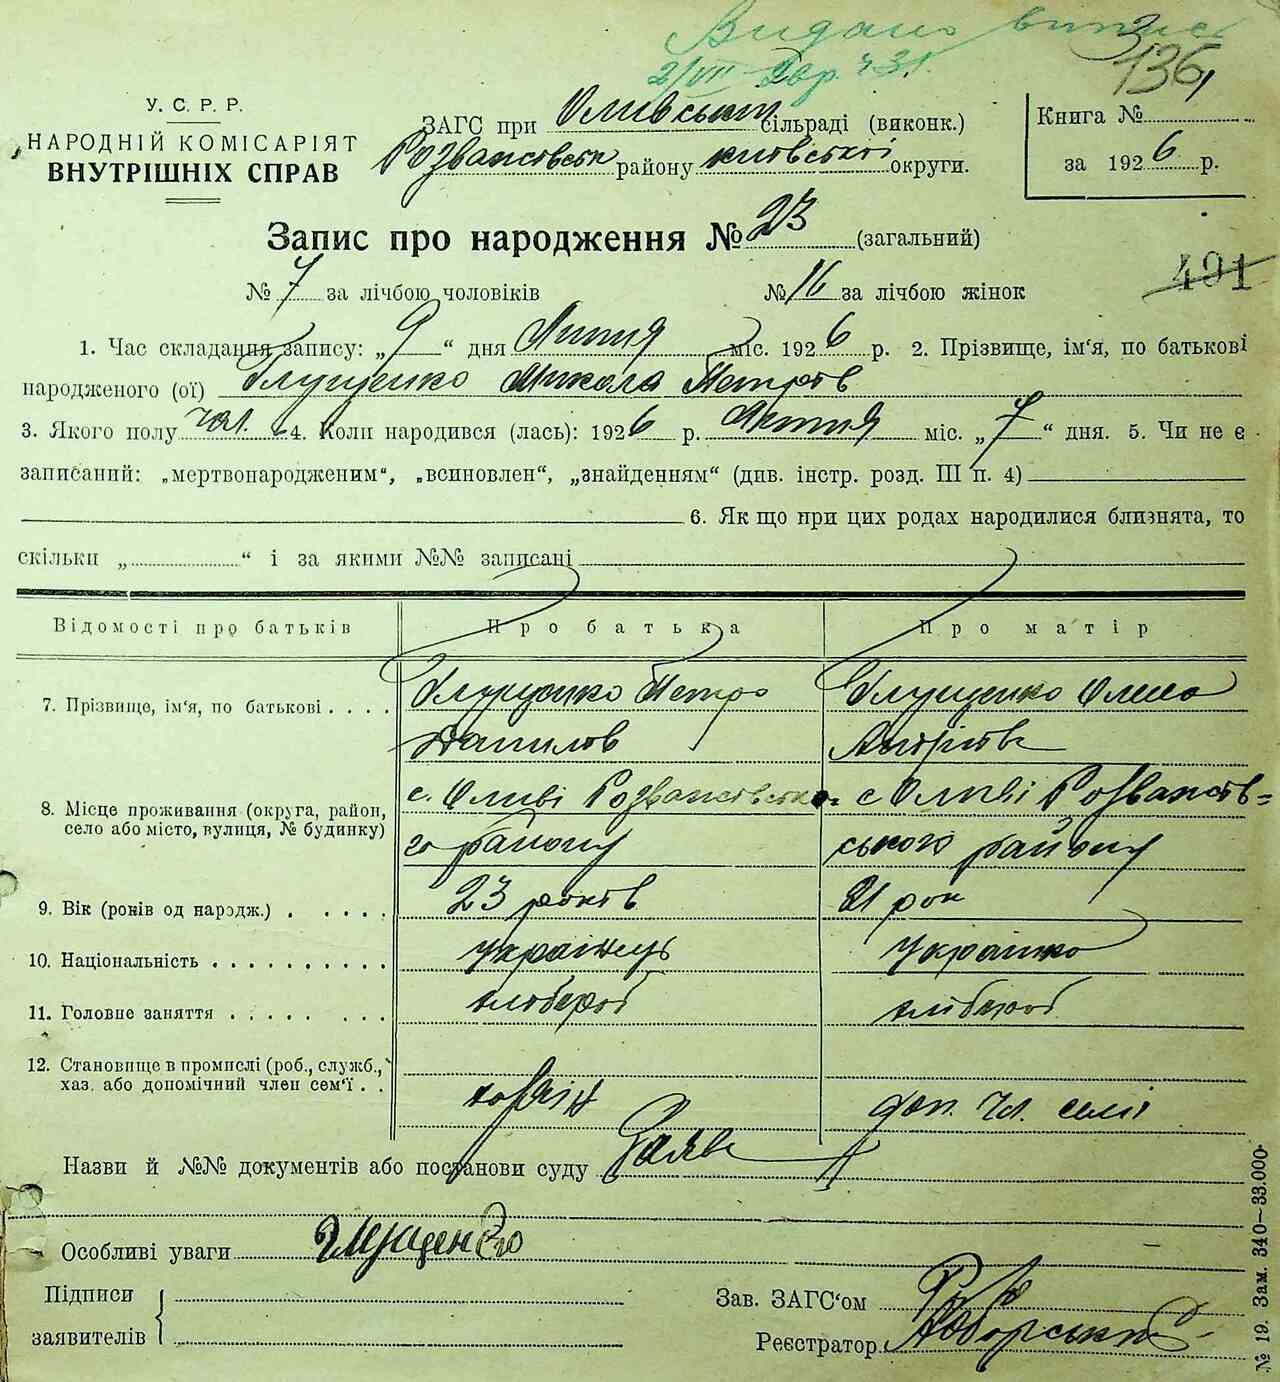 Видано випис
2/VII
136
У. С. Р. Р.
НАРОДНІЙ КОМІСАРІЯТ
ВНУТРІШНІХ СПРАВ
ЗАГС при Оливській сільраді (виконк.)
Розважівськ району Київської округи.
Книга №
за 1926 р.
Запис про народження № 23 (загальний)
491
№ 7 за лічбою чоловіків № 16 за лічбою жінок
1. Час складання запису: „9“ дня Липня міс. 1926 р. 2. Прізвище, ім‘я, по батькові
народженого (ої) Глущенко Микола Петров
3. Якого полу чол. 4. Коли народився (лась): 1926 р. Липня міс. „7“ дня. 5. Чи не є
записаний: „мертвонародженим“, „всиновлен“, „знайденням“ (див. інстр. розд. III п. 4)
6. Як що при цих родах народилися близнята, то
скільки „ “ і за якими №№ записані
Відомості про батьків Про батька Про матір
7. Прізвище, ім‘я, по батькові Глущенко Петро Глущенко Олена
Данилов Андріїв
8. Місце проживання (округа, район, село або місто, вулиця, № будинку) с. Оливі Розважівсько- с Оливі Розважів-
го району ського району
9. Вік (років од народж.) 23 років 21 рок
10. Національність українець українка
11. Головне заняття хлібороб хлібороб
12. Становище в промислі (роб., служб., хаз. або допомічний член сем‘ї хазяін доп. чл. семіі
Назви й №№ документів або постанови суду Заява
Особливі уваги Глущенко
Підписи
заявителів
Зав. ЗАГС‘ом
Реєстратор
№ 19. Зам. 340—33.000